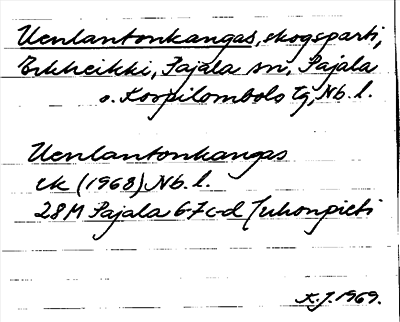 Uenlantonkangas, skogsparti,
Erkheikki, Pajala sn, Pajala
o. Korpilombolo tg, Nb. l.
Uenlantonkangas
ek (1968) Nb. l.
28M Pajala 6-7c-d Juhonpieti
K.J. 1969.